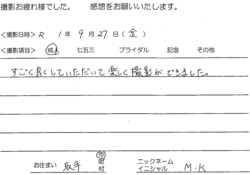 撮影お疲れ様でした。 感想をお願いいたします。
<撮影日時> R 1年9月27日(金)
<撮影項目> 成人 七五三 ブライダル 記念 その他
すごく良くしていただいて楽しく撮影ができました。
お住まい 取手 市 町 村 ニックネーム イニシャル M.K